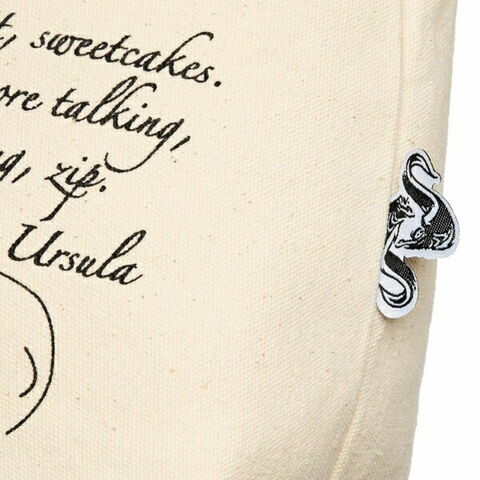 t, sweetcakes.
ore talking,
g, zip.
Ursula